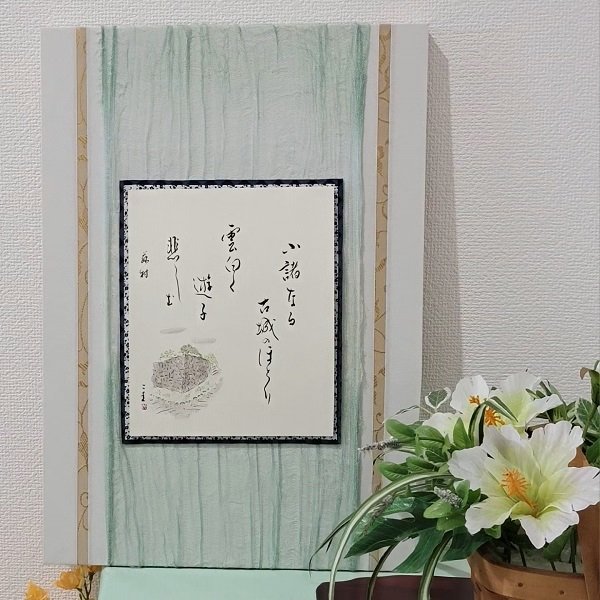 小諸なる
古城のほとり
雲白く
遊子
悲しむ
藤村